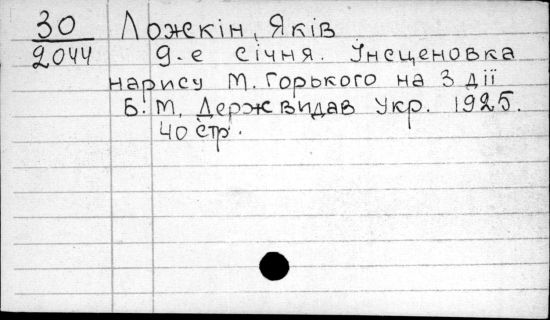 30 Ложкін, Яків
2044 9-е січня. Інсценовка
нарису М. Горького на 3 дії
Б. М, Держвидав Укр. 1925.
40 стр.